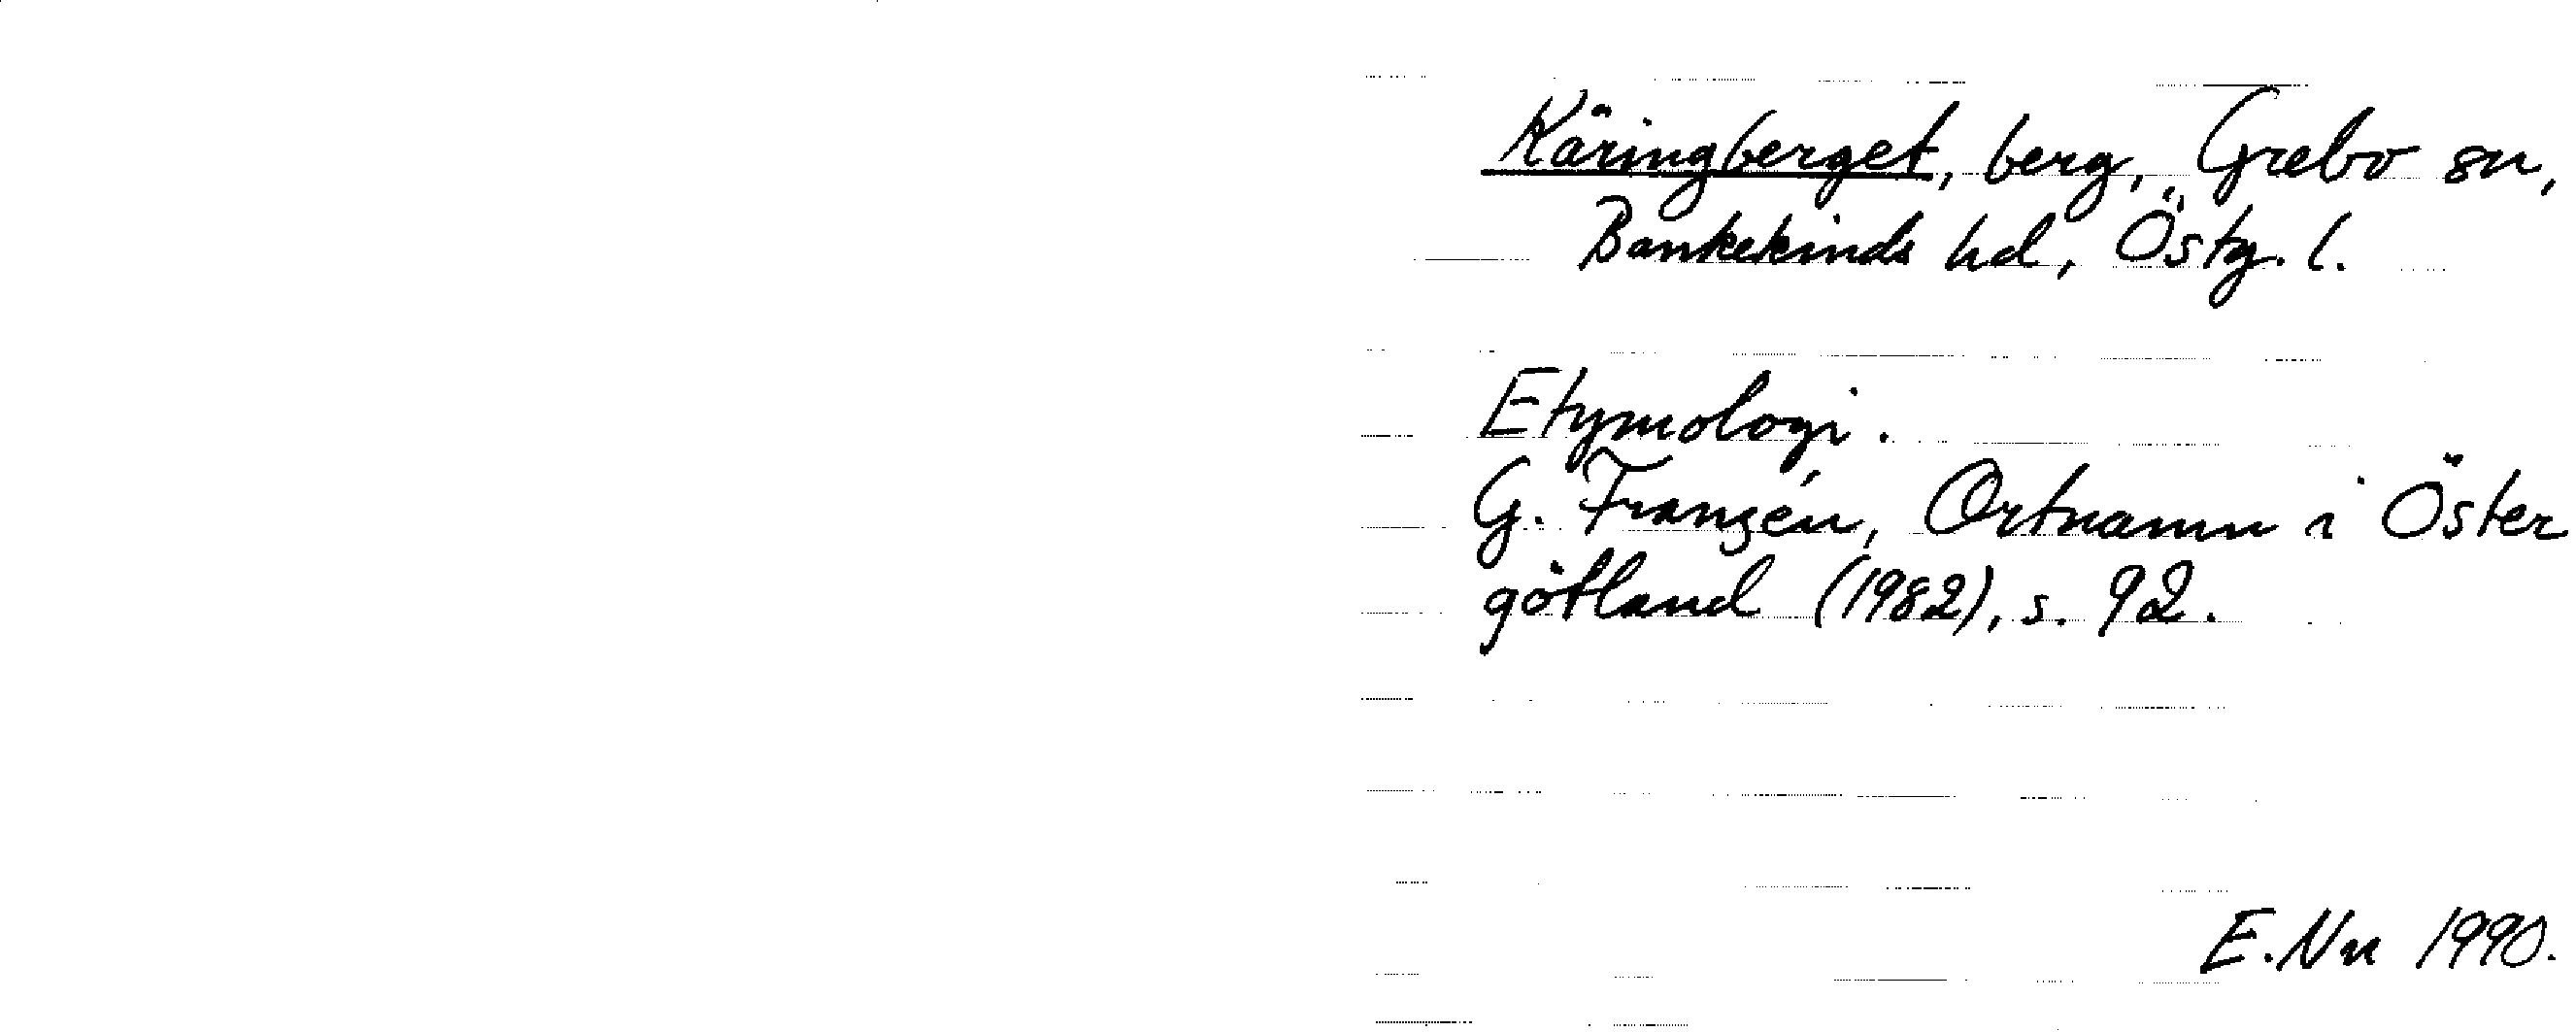 Käringberget, berg, Grebo sn,
Bankekinds hd, Östg. l.
Etymologi.
G. Franzén, Ortnamn i Öster
götland (1982), s. 92.
E. Nn 1990.